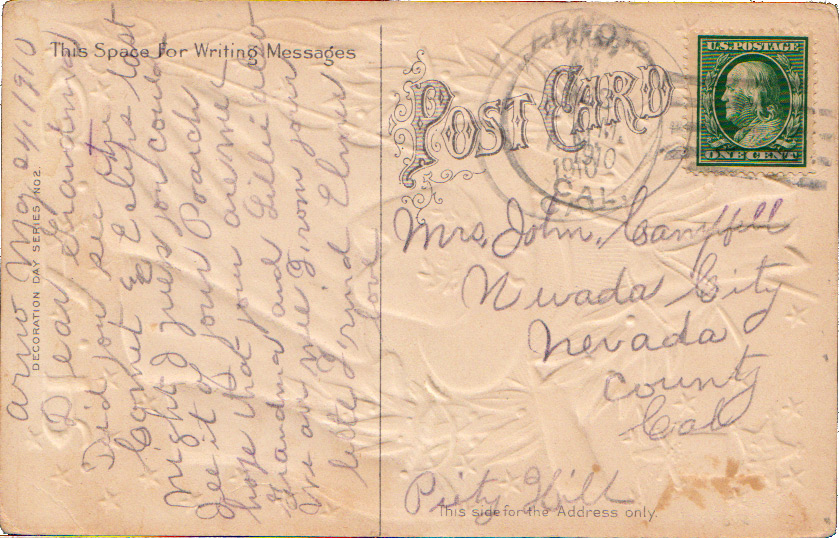 This Space For Writing Messages
Arno May 24, 1910
Dear Grandma
Did you see the
Comet & Eclips last
night I gues you could
See it of your Poarch
hope that your are we-
Grandma and Lillie also
We are well From your
little Frind Elmer
love
DECORATION DAY SERIES NO2.
POST CARD
ARNO
1910
CAL.
U.S. POSTAGE
ONE CENT
Mrs. John,
Nuvada City
Nevada
County
Cal
Piety Hill
This side for the Address only.